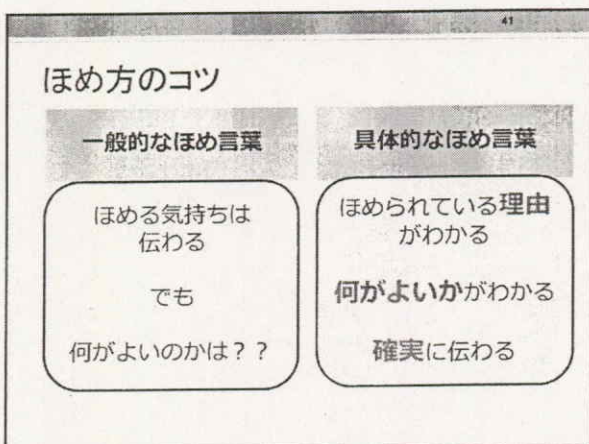 41
ほめ方のコツ
一般的なほめ言葉
ほめる気持ちは
伝わる
でも
何がよいのかは？？
具体的なほめ言葉
ほめられている理由
がわかる
何がよいかがわかる
確実に伝わる